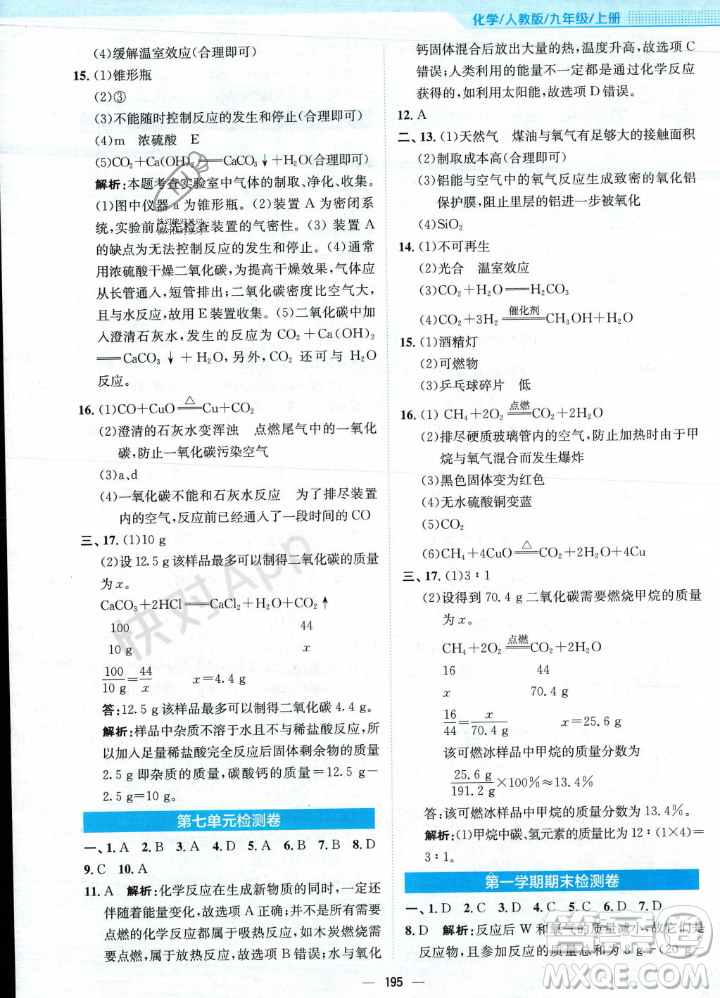 化学/人教版/九年级/上册
(4)缓解温室效应(合理即可)
15. (1)锥形瓶
(2)③
(3)不能随时控制反应的发生和停止(合理即可)
(4)m 浓硫酸 E
(5)CO₂+Ca(OH)₂══CaCO₃↓+H₂O
解析:本题考查实验室中气体的制取、净化、收集。
(1)图中仪器 a 为锥形瓶。(2)装置 A 为密闭系
统,实验前应先检查装置的气密性。(3) 装置 A
的缺点为无法控制反应的发生和停止。(4)通常
用浓硫酸干燥二氧化碳,为了充分干燥,气体应
从长管通入,短管排出;二氧化碳密度比空气大,
且与水反应,故用 E 装置收集。(5)二氧化碳中
加入澄清石灰水,发生的反应为 CO₂+Ca(OH)₂
══CaCO₃↓+H₂O,另外,CO₂ 还可与 H₂O
反应。
16. (1)CO+CuO≜Cu+CO₂
(2)澄清的石灰水变浑浊 点燃尾气中的一氧化
碳,防止一氧化碳污染空气
(3)a、d
(4)一氧化碳不能和石灰水反应 为了排尽装置
内的空气,反应前已经通入了一段时间的 CO
三、17. (1)10 g
(2)设 12.5 g 该样品最多可以制得二氧化碳的质量
为 x。
CaCO₃+2HCl══CaCl₂+H₂O+CO₂↑
100 44
10 g x
100/10 g=44/x x=4.4 g
答:12.5 g 该样品最多可以制得二氧化碳 4.4 g。
解析:样品中杂质不溶于水且不与稀盐酸反应,所
以加入足量稀盐酸完全反应后固体剩余物的质量
2.5 g 即杂质的质量,碳酸钙的质量=12.5 g-
2.5 g=10 g。
第七单元检测卷
一、1. A 2. B 3. A 4. D 5. A 6. B 7. B 8. D
9. C 10. A
11. A 解析:化学反应在生成新物质的同时,一定还
伴随着能量变化,故选项 A 正确;并不是所有需要
点燃的化学反应都属于吸热反应,如木炭燃烧需要
点燃,属于放热反应,故选项 B 错误;水与氧化
钙固体混合后放出大量的热,有能量产生,故选项 C
错误;人类利用的能量不一定都是通过化学反应
获得的,如利用太阳能,故选项 D 错误。
12. A
二、13. (1)天然气 煤油与氧气有足够大的接触面积
(2)制取成本高(合理即可)
(3)铝能与空气中的氧气反应生成致密的氧化铝
保护膜,阻止内部的铝进一步被氧化
(4)SiO₂
14. (1)不可再生
(2)光合 温室效应
(3)CO₂+H₂O══H₂CO₃
(4)CO₂+3H₂ 催化剂══CH₃OH+H₂O
15. (1)酒精灯
(2)可燃物
(3)乒乓球碎片 低
16. (1) CH₄+2O₂ 点燃══CO₂+2H₂O
(2)排尽硬质玻璃管内的空气,防止由于甲
烷与氧气混合而发生爆炸
(3)黑色固体变为红色
(4)无水硫酸铜变蓝
(5)CO₂
(6)CH₄+4CuO≜4Cu+CO₂+2H₂O
三、17. (1)3∶1
(2)设得到 70.4 g 二氧化碳需要燃烧甲烷的质量
为 x。
CH₄+2O₂ 点燃══CO₂+2H₂O
16 44
x 70.4 g
16/44=x/70.4 g x=25.6 g
该可燃冰样品中甲烷的质量分数为
25.6 g
答:该可燃冰样品中甲烷的质量分数为
解析:(1)甲烷中碳、氢元素的质量比为 12∶(1×4)=
3∶1。
第一学期期末检测卷
一、1. D 2. C 3. C 4. D 5. D 6. D 7. D
8. D 解析:反应后 W 和氧气的质量减小,故它们是
反应物,且参加反应的质量总和为 8 g+(20 g
195
快对App
答案圈
MXQE.COM